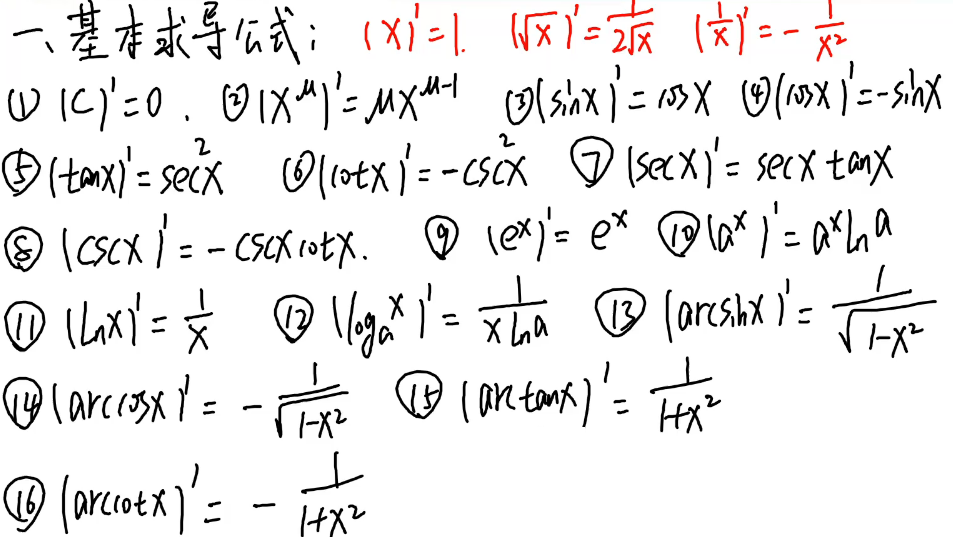 一、基本求导公式: (x)'=1. (√x)'=1/(2√x) (1/x)'=-1/x²
① (C)'=0. ② (x^μ)'=μx^(μ-1) ③ (sinx)'=cosx ④ (cosx)'=-sinx
⑤ (tanx)'=sec²x ⑥ (cotx)'=-csc²x ⑦ (secx)'=secx tanx
⑧ (cscx)'=-cscxcotx. ⑨ (e^x)'=e^x ⑩ (a^x)'=a^x ln a
⑪ (lnx)'=1/x ⑫ (log_a x)'=1/(x ln a) ⑬ (arcsinx)'=1/√(1-x²)
⑭ (arccosx)'=-1/√(1-x²) ⑮ (arctanx)'=1/(1+x²)
⑯ (arccotx)'=-1/(1+x²)